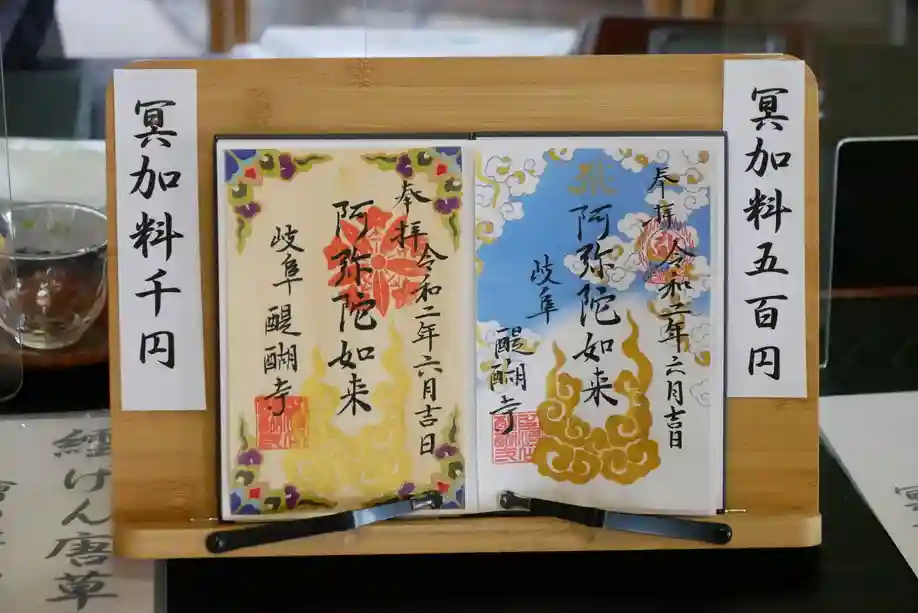 冥加料五百円
奉拝 令和二年六月吉日
阿弥陀如来
岐阜 醍醐寺
奉拝 令和二年六月吉日
阿弥陀如来
岐阜 醍醐寺
冥加料千円
纒げん唐草